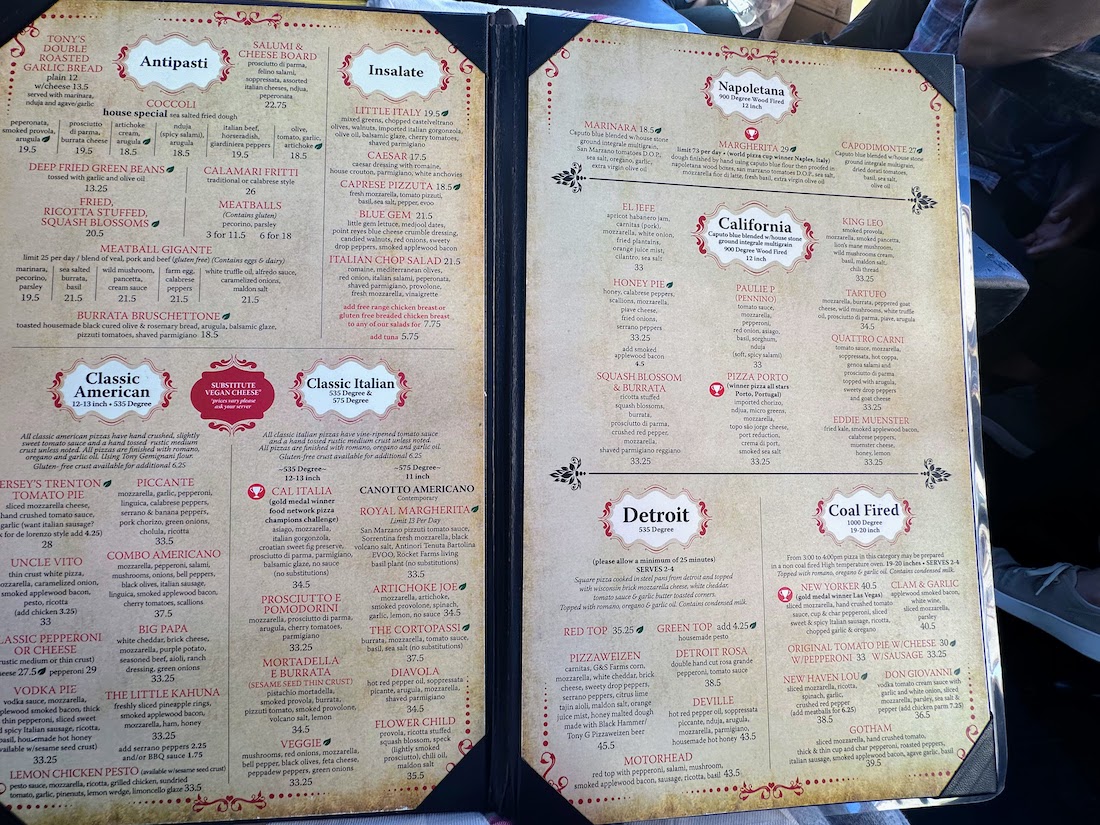 Antipasti
TONY'S
DOUBLE
ROASTED
GARLIC BREAD
plain 12
w/cheese 13.5
served with marinara,
nduja and agave/garlic
SALUMI &
CHEESE BOARD
prosciutto di parma,
felino salami,
soppressata, assorted
italian cheeses, ndjua,
peperonata
22.75
COCCOLI
house special sea salted fried dough
peperonata,
smoked provola,
arugula
19.5
prosciutto
di parma,
burrata cheese
19.5
artichoke
cream,
arugula
18.5
nduja
(spicy salami),
arugula
18.5
italian beef,
horseradish,
giardiniera peppers
19.5
olive,
tomato, garlic,
artichoke
18.5
DEEP FRIED GREEN BEANS
tossed with garlic and olive oil
13.25
CALAMARI FRITTI
traditional or calabrese style
26
FRIED,
RICOTTA STUFFED,
SQUASH BLOSSOMS
20.5
MEATBALLS
(Contains gluten)
pecorino, parsley
3 for 11.5 6 for 18
MEATBALL GIGANTE
limit 25 per day / blend of veal, pork and beef (gluten free) (Contains eggs & dairy)
marinara,
pecorino,
parsley
19.5
sea salted
burrata,
basil
21.5
wild mushroom,
pancetta,
cream sauce
21.5
farm egg,
calabrese
peppers
21.5
white truffle oil, alfredo sauce,
caramelized onions,
maldon salt
21.5
BURRATA BRUSCHETTONE
toasted housemade black cured olive & rosemary bread, arugula, balsamic glaze,
pizzuti tomatoes, shaved parmigiano 18.5
Insalate
LITTLE ITALY 19.5
mixed greens, chopped castelveltrano
olives, walnuts, imported italian gorgonzola,
olive oil, balsamic glaze, cherry tomatoes,
shaved parmigiano
CAESAR 17.5
caesar dressing with romaine,
house crouton, parmigiano, white anchovies
CAPRESE PIZZUTA 18.5
fresh mozzarella, tomato pizzuti,
basil, sea salt, pepper, evoo
BLUE GEM 21.5
little gem lettuce, medjool dates,
point reyes blue cheese crumble dressing,
candied walnuts, red onions, sweety
drop peppers, smoked applewood bacon
ITALIAN CHOP SALAD 21.5
romaine, mediterranean olives,
red onion, italian salami, peperonata,
shaved parmigiano, provolone,
fresh mozzarella, vinaigrette
add free range chicken breast or
gluten free breaded chicken breast
to any of our salads for 7.75
add tuna 5.75
Classic
American
12-13 inch • 535 Degree
SUBSTITUTE
VEGAN CHEESE*
*prices vary please
ask your server
Classic Italian
535 Degree &
575 Degree
All classic american pizzas have hand crushed, slightly
sweet tomato sauce and a hand tossed rustic medium
crust unless noted. All pizzas are finished with romano,
oregano and garlic oil. Using Tony Gemignani flour.
Gluten-free crust available for additional 6.25
ERSEY'S TRENTON
TOMATO PIE
sliced mozzarella cheese,
hand crushed tomato sauce,
garlic (want italian sausage?
k for de lorenzo style add 4.25)
28
UNCLE VITO
thin crust white pizza,
mozzarella, caramelized onion,
smoked applewood bacon,
pesto, ricotta
(add chicken 3.25)
33
LASSIC PEPPERONI
OR CHEESE
(rustic medium or thin crust)
cheese 27.5 pepperoni 29
VODKA PIE
vodka sauce, mozzarella,
applewood smoked bacon, thick
thin pepperoni, sliced sweet
d spicy Italian sausage, ricotta,
basil, housemade hot honey
(available w/sesame seed crust)
33.25
PICCANTE
mozzarella, garlic, pepperoni,
linguica, calabrese peppers,
serrano & banana peppers,
pork chorizo, green onions,
cholula, ricotta
33.5
COMBO AMERICANO
mozzarella, pepperoni, salami,
mushrooms, onions, bell peppers,
black olives, italian sausage,
linguica, smoked applewood bacon,
cherry tomatoes, scallions
37.5
BIG PAPA
white cheddar, brick cheese,
mozzarella, purple potato,
seasoned beef, aioli, ranch
dressing, green onions
33.25
THE LITTLE KAHUNA
freshly sliced pineapple rings,
smoked applewood bacon,
mozzarella, ham, honey
33.25
add serrano peppers 2.25
and/or BBQ sauce 1.75
LEMON CHICKEN PESTO (available w/sesame seed crust)
pesto sauce, mozzarella, ricotta, grilled chicken, sundried
tomato, garlic, pinenuts, lemon wedge, limoncello glaze 33.5
All classic italian pizzas have vine-ripened tomato sauce
and a hand tossed rustic medium crust unless noted.
All pizzas are finished with romano, oregano and garlic oil.
Gluten-free crust available for additional 6.25
~535 Degree~
12-13 inch
CAL ITALIA
(gold medal winner
food network pizza
champions challenge)
asiago, mozzarella,
italian gorgonzola,
croatian sweet fig preserve,
prosciutto di parma, parmigiano,
balsamic glaze, no sauce
(no substitutions)
34.5
PROSCIUTTO E
POMODORINI
mozzarella, prosciutto di parma,
arugula, cherry tomatoes,
parmigiano
33.25
MORTADELLA
E BURRATA
(SESAME SEED THIN CRUST)
pistachio mortadella,
smoked provola, burrata,
pizzuti tomato, smoked provolone,
volcano salt, lemon
34.5
VEGGIE
mushrooms, red onions, mozzarella,
bell pepper, black olives, feta cheese,
peppadew peppers, green onions
33.25
~575 Degree~
11 inch
CANOTTO AMERICANO
Contemporary
ROYAL MARGHERITA
Limit 13 Per Day
San Marzano pizzuti tomato sauce,
Sorrentina fresh mozzarella, black
volcano salt, Antinori Tenuta Bartolina
EVOO, Rocket Farms living
basil plant (no substitutions)
33.5
ARTICHOKE JOE
mozzarella, artichoke,
smoked provolone, spinach,
garlic, lemon, no sauce 34.5
THE CORTOPASSI
burrata, mozzarella, tomato sauce,
basil, sea salt (no substitutions)
37.5
DIAVOLA
hot red pepper oil, soppressata
picante, arugula, mozzarella,
shaved parmigiano
34.5
FLOWER CHILD
provola, ricotta stuffed
squash blossom, speck
(lightly smoked
prosciutto), chili oil,
maldon salt
35.5
Napoletana
900 Degree Wood Fired
12 inch
MARINARA 18.5
Caputo blue blended w/house stone
ground integrale multigrain,
San Marzano tomatoes D.O.P.,
sea salt, oregano, garlic,
extra virgin olive oil
MARGHERITA 29
limit 73 per day • (world pizza cup winner Naples, Italy)
dough finished by hand using caputo blue flour then proofed in
napoletana wood boxes, san marzano tomatoes D.O.P., sea salt,
mozzarella fior di latte, fresh basil, extra virgin olive oil
CAPODIMONTE 27
Caputo blue blended w/house
stone ground integrale multigrain,
fried dorati tomatoes,
basil, sea salt,
olive oil
California
Caputo blue blended w/house stone
ground integrale multigrain
900 Degree Wood Fired
12 inch
EL JEFE
apricot habanero jam,
carnitas (pork),
mozzarella, white onion,
fried plantains,
orange juice mist,
cilantro, sea salt
33
HONEY PIE
honey, calabrese peppers,
scallions, mozzarella,
piave cheese,
fried onions,
serrano peppers
33.25
add smoked
applewood bacon
4.5
SQUASH BLOSSOM
& BURRATA
ricotta stuffed
squash blossoms,
burrata,
prosciutto di parma,
crushed red pepper,
mozzarella,
shaved parmigiano reggiano
33.25
PAULIE P
(PENNINO)
tomato sauce,
mozzarella,
pepperoni,
red onion, asiago,
basil, sorghum,
nduja
(soft, spicy salami)
33
PIZZA PORTO
(winner pizza all stars
Porto, Portugal)
imported chorizo,
ndjua, micro greens,
mozzarella,
topo são jorge cheese,
port reduction,
crema di port,
smoked sea salt
33.25
KING LEO
smoked provola,
mozzarella, smoked pancetta,
lion's mane mushroom,
wild mushrooms cream,
basil, maldon salt,
chili thread
33.25
TARTUFO
mozzarella, burrata, peppered goat
cheese, wild mushrooms, white truffle
oil, prosciutto di parma, piave, arugula
34.5
QUATTRO CARNI
tomato sauce, mozzarella,
soppressata, hot coppa,
genoa salami and
prosciutto di parma
topped with arugula,
sweety drop peppers
and goat cheese
33.25
EDDIE MUENSTER
fried kale, smoked applewood bacon,
calabrese peppers,
muenster cheese,
honey, lemon
33.25
Detroit
535 Degree
(please allow a minimum of 25 minutes)
SERVES 2-4
Square pizza cooked in steel pans from detroit and topped
with wisconsin brick mozzarella cheese, white cheddar,
tomato sauce & garlic butter toasted corners.
Topped with romano, oregano & garlic oil. Contains condensed milk.
RED TOP 35.25
GREEN TOP add 4.25
housemade pesto
PIZZAWEIZEN
carnitas, G&S Farms corn,
mozzarella, white cheddar, brick
cheese, sweety drop peppers,
serrano peppers, citrus lime
tajin aioli, maldon salt, orange
juice mist, honey malted dough
made with Black Hammer/
Tony G Pizzaweizen beer
45.5
DETROIT ROSA
double hand cut rosa grande
pepperoni, tomato sauce
38.5
DEVILLE
hot red pepper oil, soppressata
piccante, nduja, arugula,
mozzarella, parmigiano,
housemade hot honey 43.5
MOTORHEAD
red top with pepperoni, salami, mushroom,
smoked applewood bacon, sausage, ricotta, basil 43.5
Coal Fired
1000 Degree
19-20 inch
From 3:00 to 4:00pm pizza in this category may be prepared
in a non coal fired High temperature oven. 19-20 inches • SERVES 2-4
Topped with romano, oregano & garlic oil. Contains condensed milk.
NEW YORKER 40.5
(gold medal winner Las Vegas)
sliced mozzarella, hand crushed tomato
sauce, cup & char pepperoni, sliced
sweet & spicy Italian sausage, ricotta,
chopped garlic & oregano
CLAM & GARLIC
applewood smoked bacon,
white wine,
sliced mozzarella,
parsley
40.5
ORIGINAL TOMATO PIE W/CHEESE 30
W/PEPPERONI 33 W/SAUSAGE 33.25
NEW HAVEN LOU
sliced mozzarella, ricotta,
spinach, garlic,
crushed red pepper
(add meatballs for 6.25)
38.5
DON GIOVANNI
vodka tomato cream sauce with
garlic and white onion, sliced
mozzarella, parsley, sea salt &
pepper (add chicken parm 7.25)
36.5
GOTHAM
sliced mozzarella, hand crushed tomato,
thick & thin cup and char pepperoni, roasted peppers,
italian sausage, smoked applewood bacon, onion, agave garlic, basil
39.5